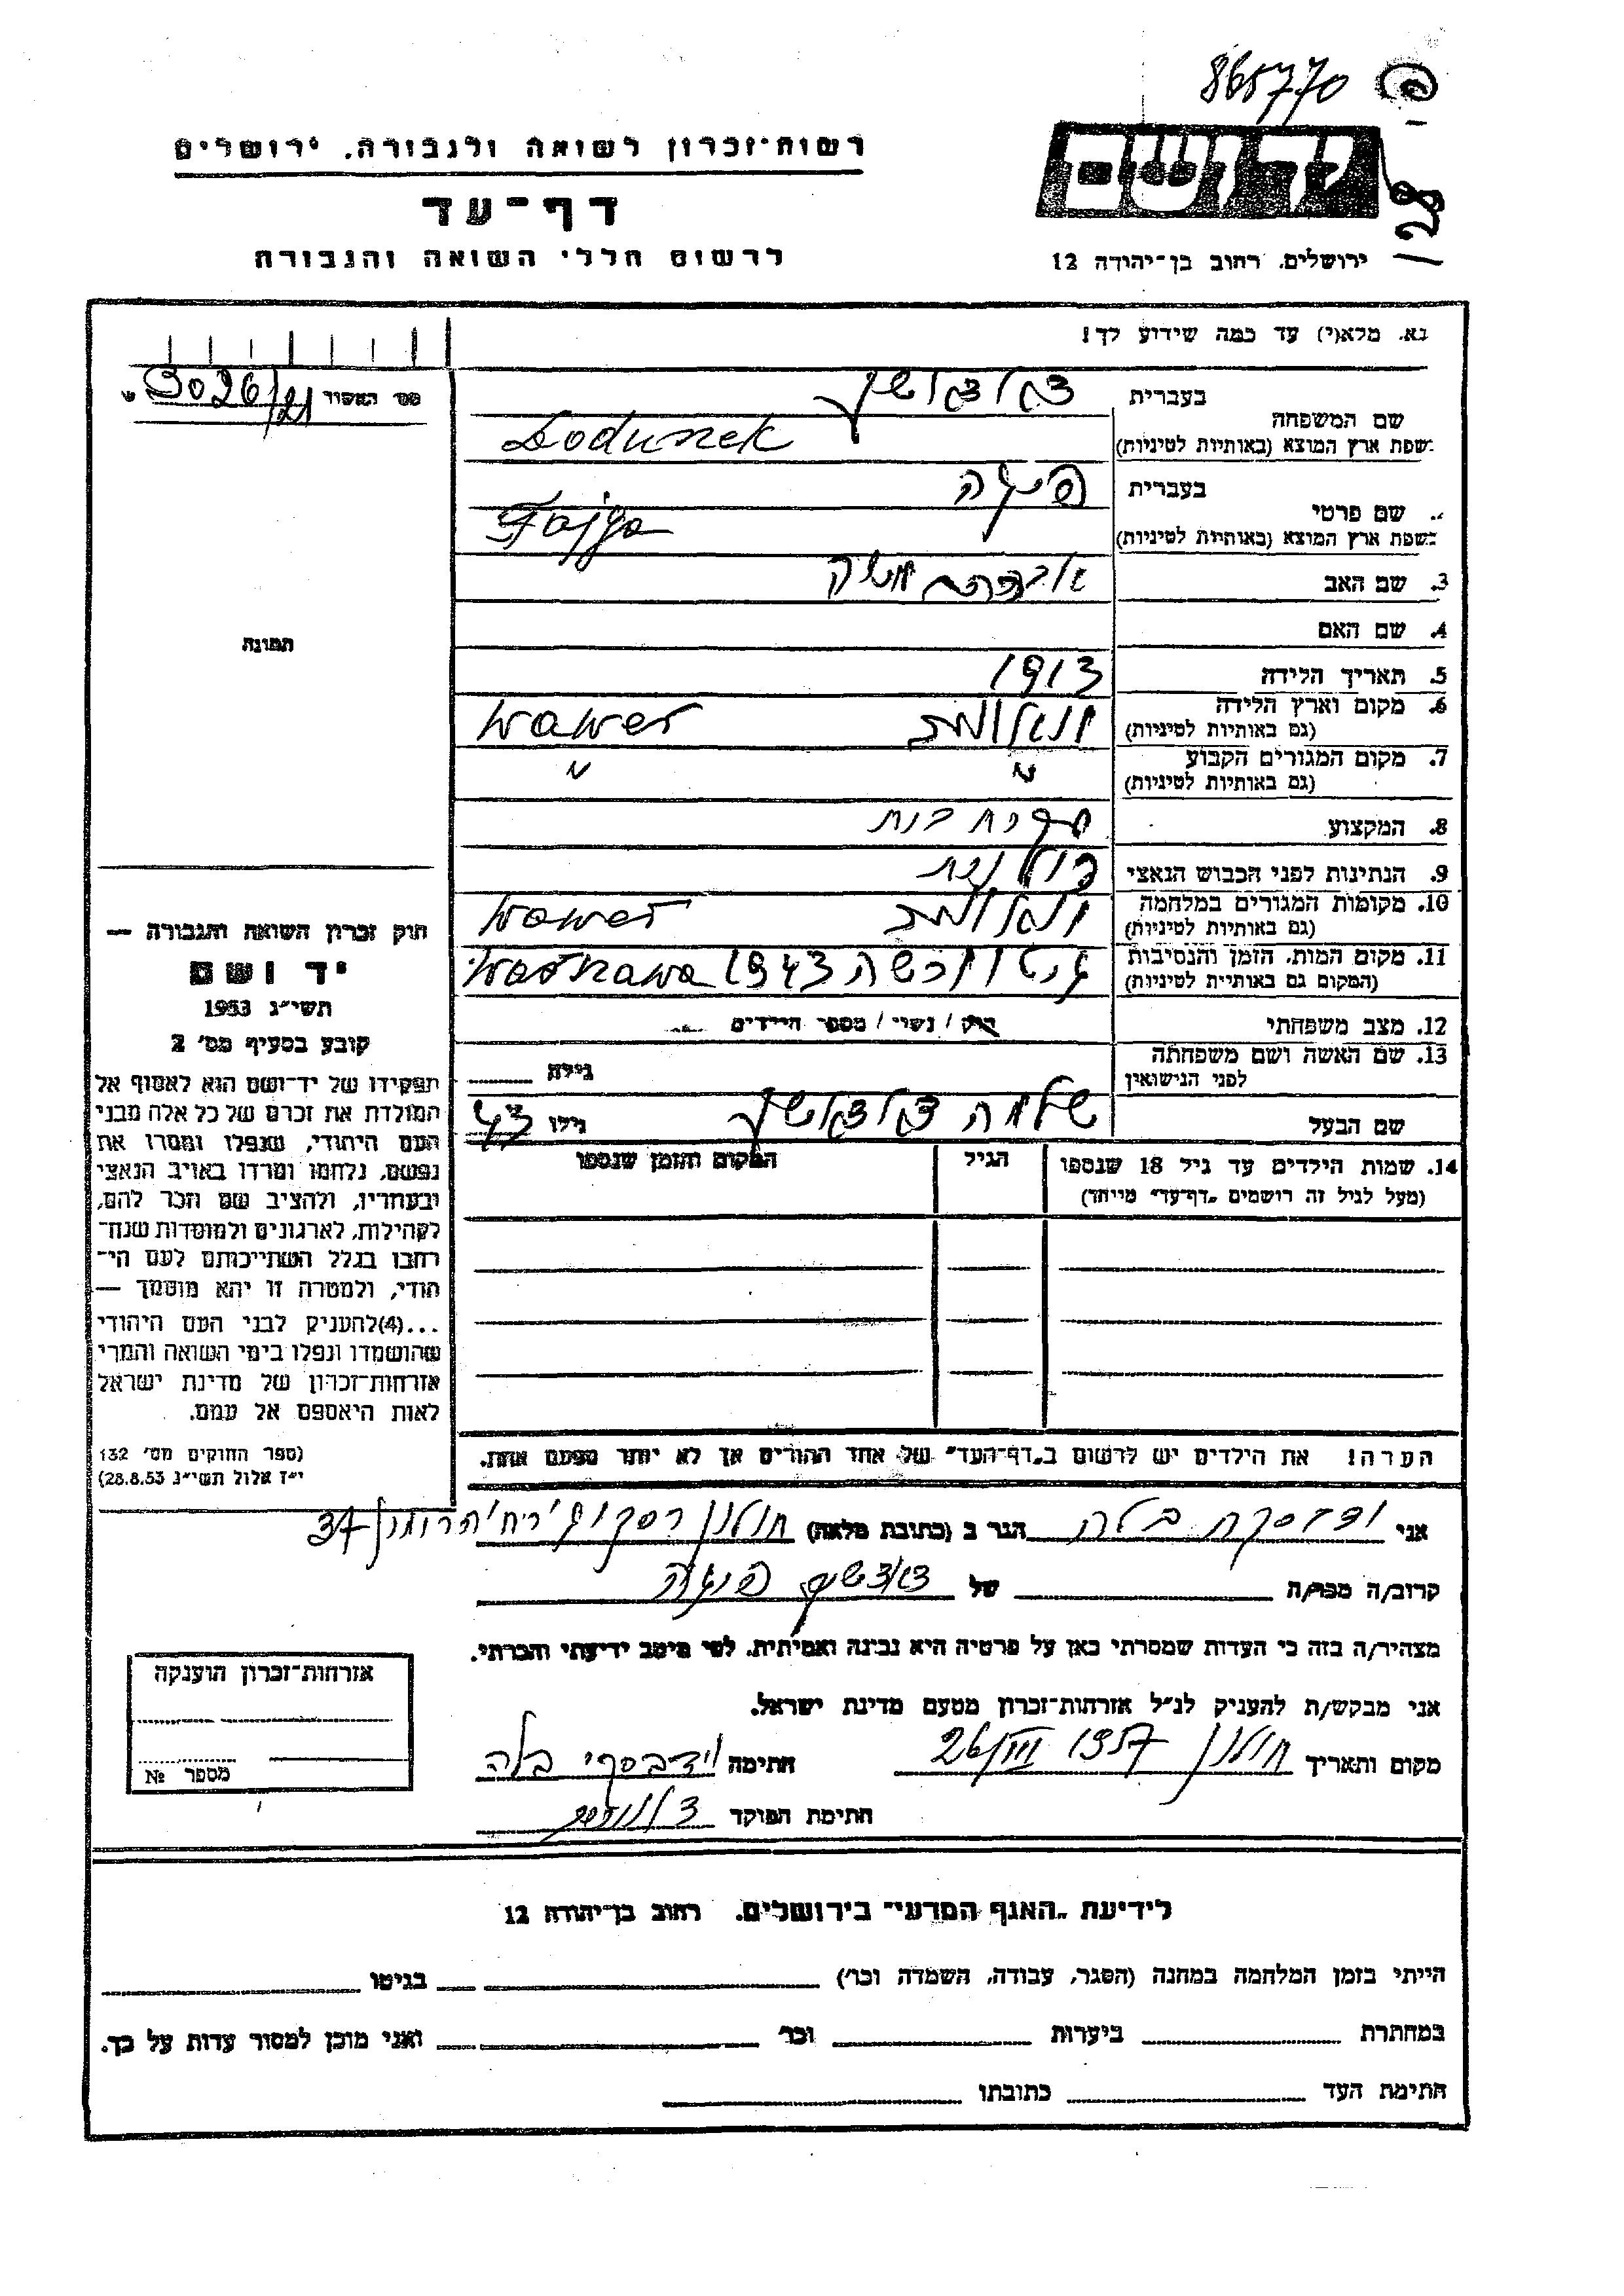 865770
רשות-זכרון לשואה ולגבורה, ירושלים
דף-עד
לרשום חללי השואה והגבורה
ירושלים, רחוב בן-יהודה 12
נא, מלא(י) עד כמה שידוע לך!
מס׳ האשור 3026/21
בעברית
שם המשפחה
בשפת ארץ המוצא (באותיות לטיניות)
בעברית פיגה
שם פרטי
בשפת ארץ המוצא (באותיות לטיניות) Fajga
3. שם האב אברהם משה
4. שם האם
תמונה
5. תאריך הלידה 1913
6. מקום וארץ הלידה Wawer
(גם באותיות לטיניות)
7. מקום המגורים הקבוע
(גם באותיות לטיניות) " "
8. המקצוע
9. הנתינות לפני הכבוש הנאצי פולנית
10. מקומות המגורים במלחמה Wawer
(גם באותיות לטיניות)
11. מקום המות, הזמן והנסיבות גיטו ורשה 1943 Warszawa
(המקום גם באותיות לטיניות)
12. מצב משפחתי רוק / נשוי / מספר הילדים
13. שם האשה ושם משפחתה
לפני הנישואין גילה
שם הבעל שלמה גילו 43
14. שמות הילדים עד גיל 18 שנספו הגיל המקום והזמן שנספו
(מעל לגיל זה רושמים „דף-עד" מיוחד)
חוק זכרון השואה והגבורה —
יד ושם
תשי״ג 1953
קובע בסעיף מס׳ 2
תפקידו של יד-ושם הוא לאסוף אל
המולדת את זכרם של כל אלה מבני
העם היהודי, שנפלו ומסרו את
נפשם, נלחמו ומרדו באויב הנאצי
ובעוזריו, ולהציב שם וזכר להם,
לקהילות, לארגונים ולמוסדות שנח-
רבו בגלל השתייכותם לעם הי-
הודי, ולמטרה זו יהא מוסמך —
...(4)להעניק לבני העם היהודי
שהושמדו ונפלו בימי השואה והמרי
אזרחות-זכרון של מדינת ישראל
לאות היאספם אל עמם.
(ספר החוקים מס׳ 132
י״ז אלול תשי״ג 28.8.53)
הערה! את הילדים יש לרשום ב„דף-העד" של אחד ההורים אך לא יותר מפעם אחת.
אני בלה הגר ב (כתובת מלאה) חולון 37
קרוב/ה מכר/ה של פיגה
מצהיר/ה בזה כי העדות שמסרתי כאן על פרטיה היא נכונה ואמיתית, לפי מיטב ידיעתי והכרתי.
אני מבקש/ת להעניק לנ״ל אזרחות-זכרון מטעם מדינת ישראל.
מקום ותאריך חולון 1957 חתימה בלה
חתימת הפוקד
אזרחות-זכרון הוענקה
מספר №
לידיעת „האגף המדעי" בירושלים, רחוב בן-יהודה 12
הייתי בזמן המלחמה במחנה (הסגר, עבודה, השמדה וכו׳) בגיטו
במחתרת ביערות וכו׳ ואני מוכן למסור עדות על כך.
חתימת העד כתובתו